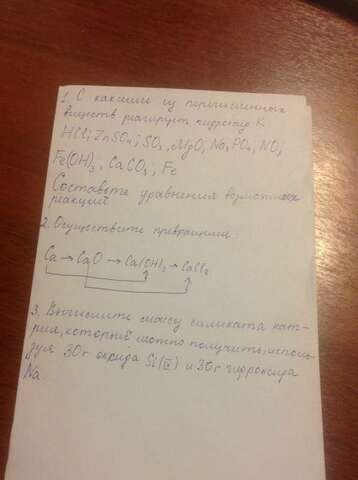 1. С какими из перечисленных
веществ реагирует гидроксид К
HCl; ZnSO4; SO3, MgO, Na3PO4, NO;
Fe(OH)3, CaCO3; Fe
Составьте уравнения возможных
реакций
2. Осуществите превращения:
Ca → CaO → Ca(OH)2 → CaCl2
3. Вычислите массу силиката нат-
рия, который можно получить, исполь-
зуя 30г оксида Si(IV) и 30г гидроксида
Na